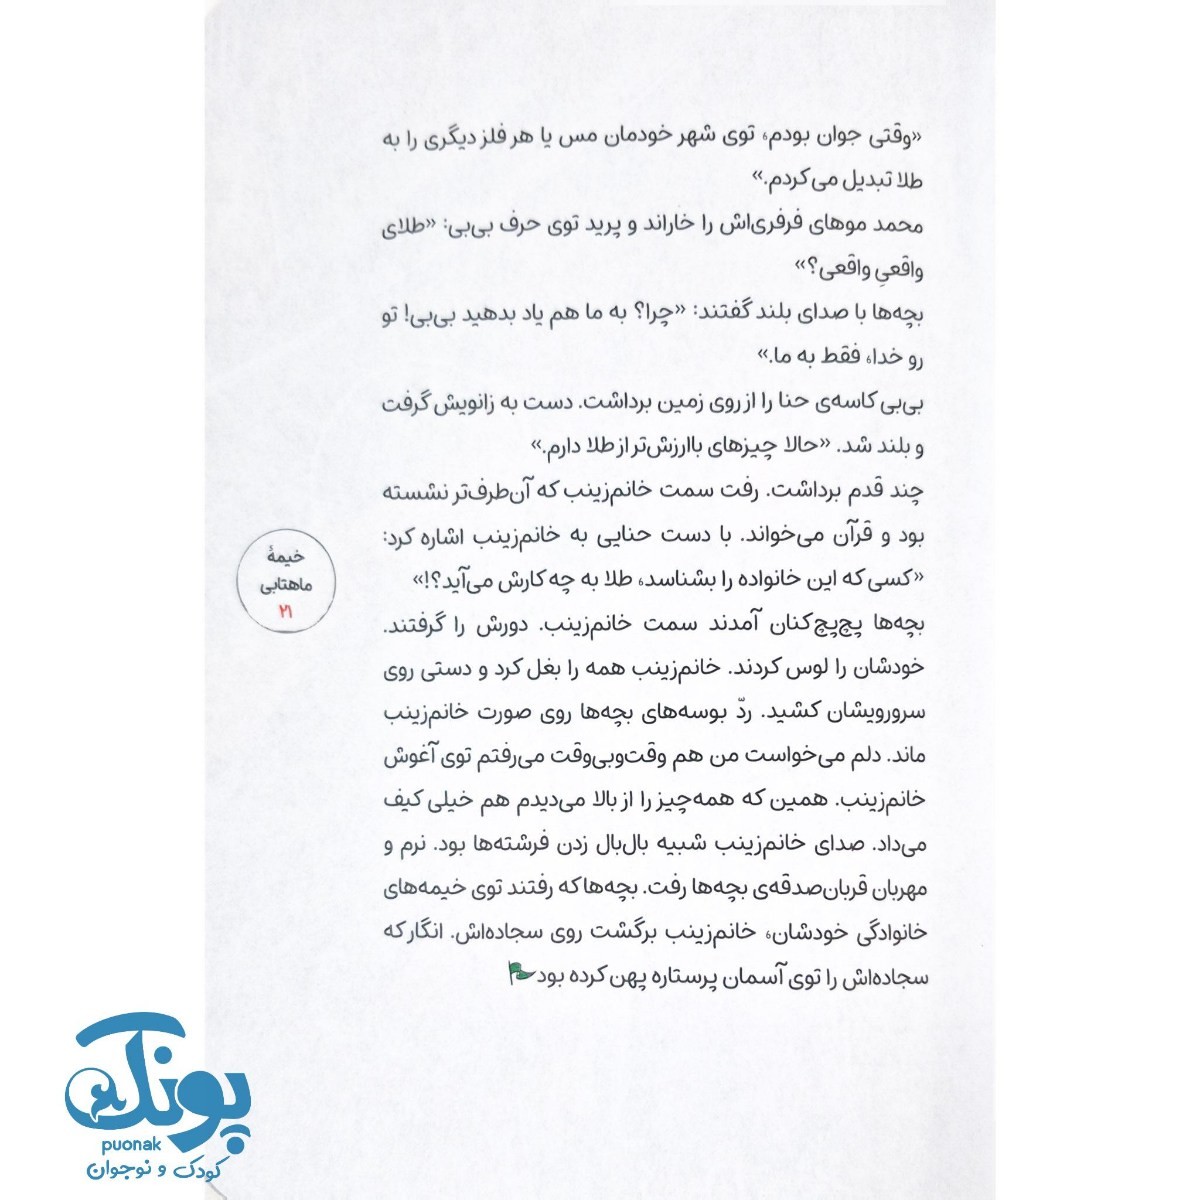 «وقتی جوان بودم، توی شهر خودمان مس یا هر فلز دیگری را به
طلا تبدیل می‌کردم.»
محمد موهای فرفری‌اش را خاراند و پرید توی حرف بی‌بی: «طلای
واقعیِ واقعی؟»
بچه‌ها با صدای بلند گفتند: «چرا؟ به ما هم یاد بدهید بی‌بی! تو
رو خدا، فقط به ما.»
بی‌بی کاسه‌ی حنا را از روی زمین برداشت. دست به زانویش گرفت
و بلند شد. «حالا چیزهای باارزش‌تر از طلا دارم.»
چند قدم برداشت. رفت سمت خانم‌زینب که آن‌طرف‌تر نشسته
بود و قرآن می‌خواند. با دست حنایی به خانم‌زینب اشاره کرد:
«کسی که این خانواده را بشناسد، طلا به چه کارش می‌آید؟!»
بچه‌ها پچ‌پچ‌کنان آمدند سمت خانم‌زینب. دورش را گرفتند.
خودشان را لوس کردند. خانم‌زینب همه را بغل کرد و دستی روی
سرورویشان کشید. ردّ بوسه‌های بچه‌ها روی صورت خانم‌زینب
ماند. دلم می‌خواست من هم وقت‌وبی‌وقت می‌رفتم توی آغوش
خانم‌زینب. همین که همه‌چیز را از بالا می‌دیدم هم خیلی کیف
می‌داد. صدای خانم‌زینب شبیه بال‌بال زدن فرشته‌ها بود. نرم و
مهربان قربان‌صدقه‌ی بچه‌ها رفت. بچه‌ها که رفتند توی خیمه‌های
خانوادگی خودشان، خانم‌زینب برگشت روی سجاده‌اش. انگار که
سجاده‌اش را توی آسمان پرستاره پهن کرده بود
خیمهٔ
ماهتابی
۲۱
پونک
puonak
کودک و نوجوان